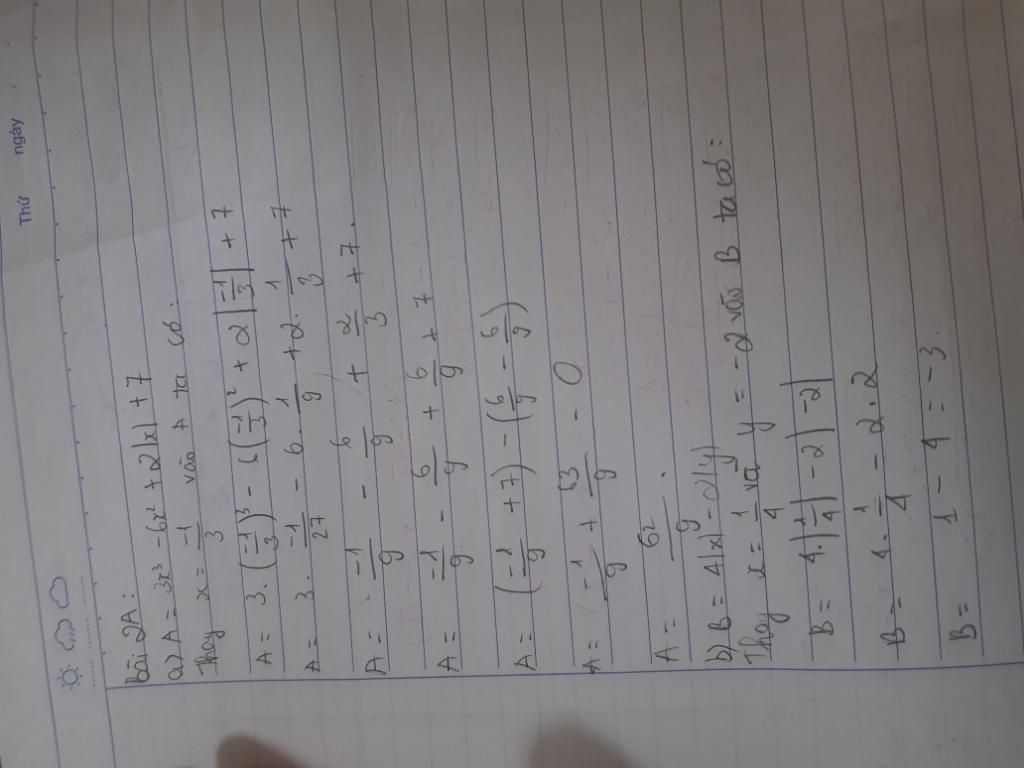 Thứ ngày
Bài 2A:
a) A = 3x³ - 6x² + 2|x| + 7
Thay x = -1/3 vào A ta có:
A = 3. (-1/3)³ - 6(-1/3)² + 2|-1/3| + 7
A = 3. -1/27 - 6. 1/9 + 2. 1/3 + 7
A = -1/9 - 6/9 + 2/3 + 7.
A = -1/9 - 6/9 + 6/9 + 7
A = (-1/9 + 7) - (6/9 - 6/9)
A = -1/9 + 63/9 - 0
A = 62/9.
b) B = 4|x| - 2|y|
Thay x = 1/4 và y = -2 vào B ta có:
B = 4.|1/4| - 2|-2|
B = 4. 1/4 - 2.2
B = 1 - 4 = -3.